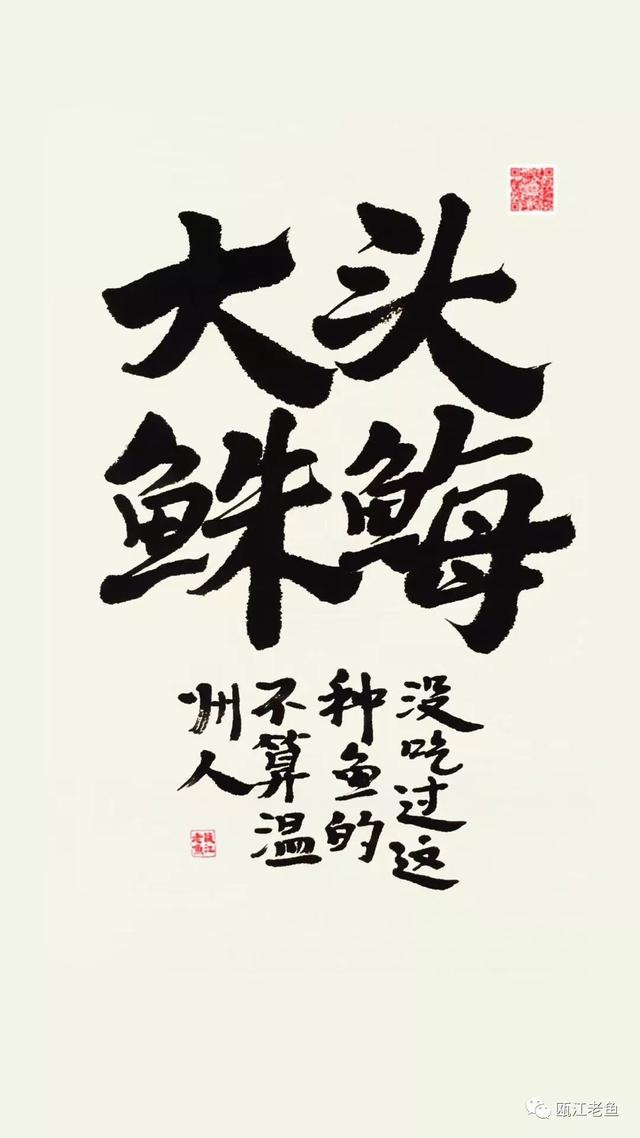 大头
鮢
没吃过这
种鱼的
不算温
州人
瓯江老鱼
瓯江老鱼